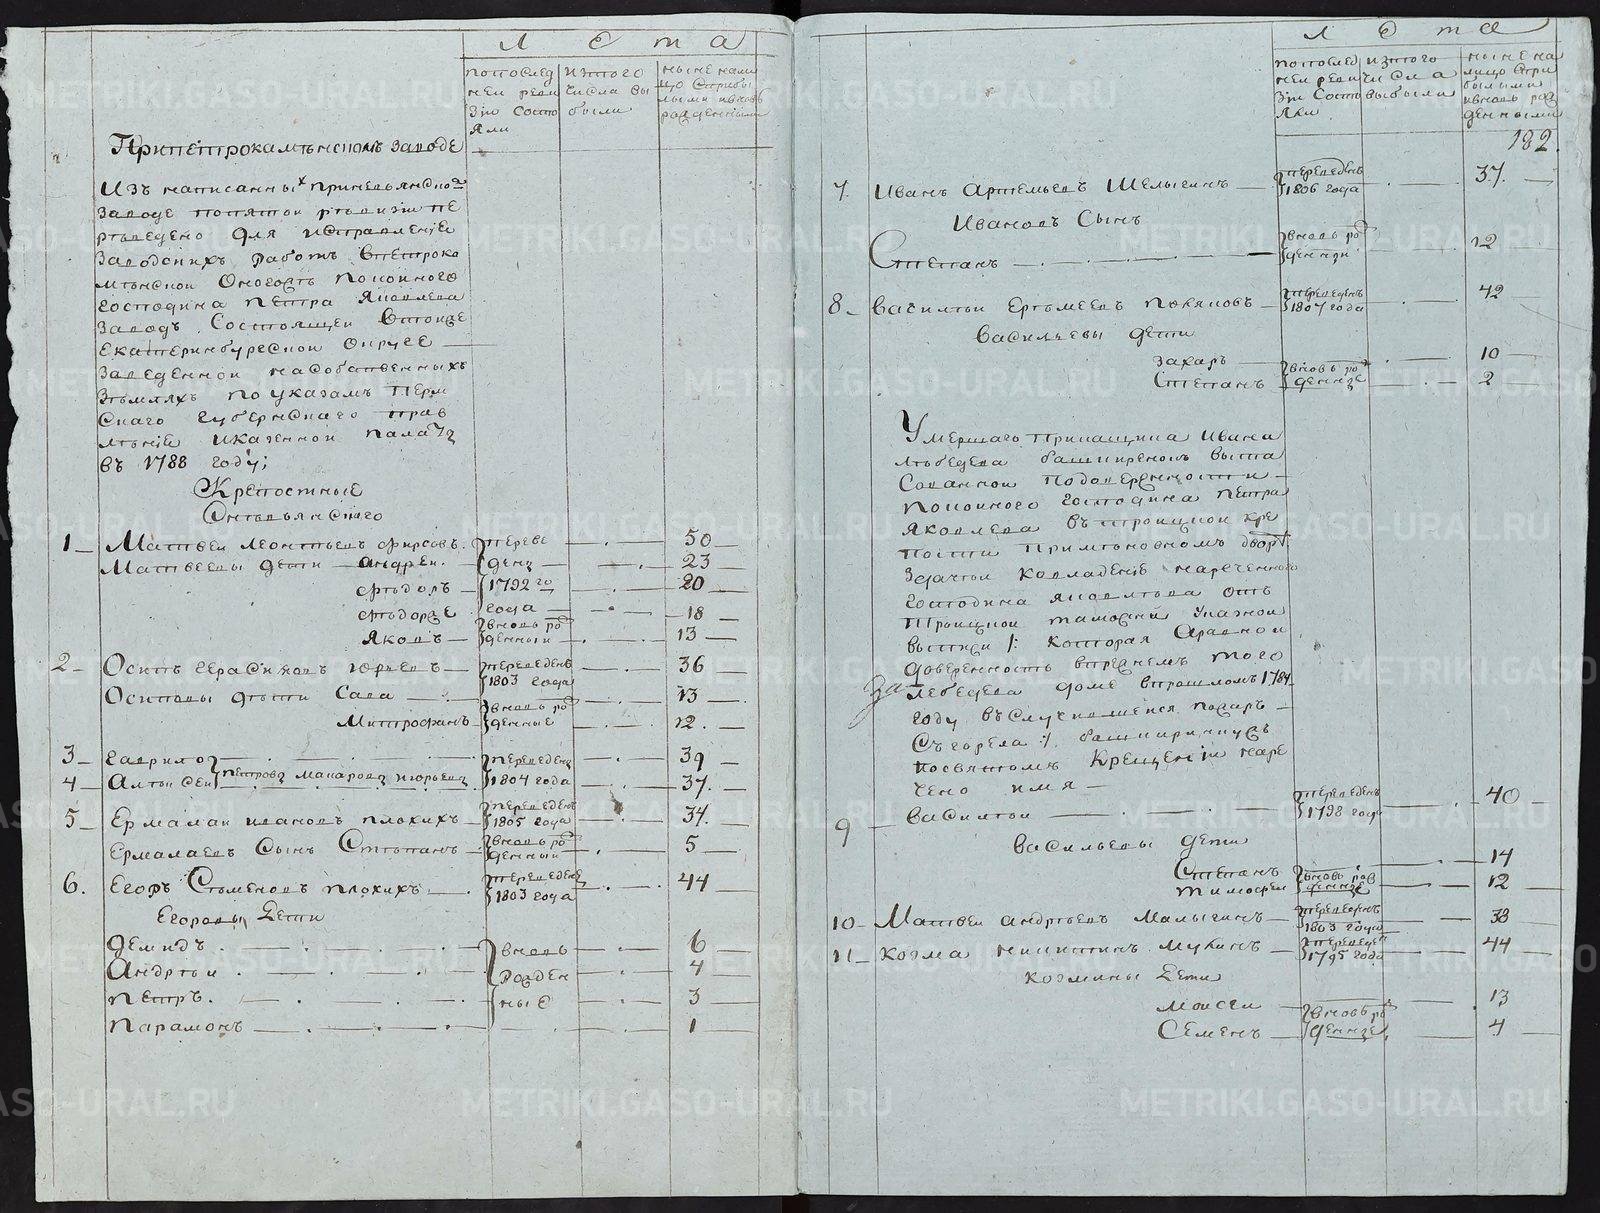 Лета
попослед ней реви зiи Состо яли
изтого числа вы были
ныне нали цо Сприбы лыми ивновь рожденными
Припетрокаменском заводе
Изъ написанных приневьянско
заводе попятой ревизiи пе
реведено для исправленiе
заводскихъ работъ впетрока
менской Оногожъ покойного
господина петра яковлева
заводъ Состоящей втомже
екатеринбургской округе
заведенной насобственныхъ
землляхъ по указамъ перм
скаго губернскаго прав
ленiе иказенной палаты
въ 1788 году;
Крепостные
1 Матвей леонтьевъ фирсовъ переве 50
Матвеевы дети андрей дены 23
федоръ 1792 го 20
федорже года 18
Яковъ вновь ро жденный 13
2 Осипъ герасимовъ юрьевъ переведенъ 1803 года 36
Осиповы дети Сава вновь ро 13
Митрофанъ жденные 12
3 гаврило переведены 39
4 Алексей петровы макаровы июрьевы 1804 года 37
5 Ермалай ивановъ плохихъ переведенъ 1805 года 34
Ермалаевъ Сынъ Степанъ вновь ро жденный 5
6. Егоръ Семеновъ плохихъ переведенъ 1803 года 44
Егоровы Дети
демидъ вновь 6
Андрей рожден 4
петръ ные 3
парамонъ 1
Лета
попослед ней реви зiи Состо яли
изтого числа выбыли
ныне на лицо Спри былыми ивновь рож денными
182.
7. Иванъ Артемьевъ Шелыгинъ переведенъ 1806 года 37.
Ивановъ Сынъ
Степанъ вновь ро жденный 12
8 Василей Еремеевъ поляковъ переведенъ 1807 года 42
васильевы дети
захаръ вновь ро 10
Степанъ жденые 2
Умершаго прикащика ивана
лебедева башкиренокъ выта
Сованной подоверенности
покойного господина петра
яковлева въ троицкой кре
пости приметновномъ дворе
Здачтой ковладенiе нареченного
господина яковлева отъ
троицкой таможни указной
выписи /: которая Оравной
доверенность втреднемъ того
За лебедева доме впрошломъ 1784
году въслучившейся пожаръ
Сгорела :/ башкиринцъ
посвятомъ Крещенiи наре
чено имя
9 василей переведенъ 1798 года 40
васильевы дети
Степанъ вновь рож 14
тимофей денные 12
10 Матвей андреевъ Малыгинъ переведенъ 1803 года 38
11 козма никитинъ мукинъ переведенъ 1795 года 44
козмины Дети
моисей вновь ро 13
Семенъ жденые 4
METRIKI.GASO-URAL.RU